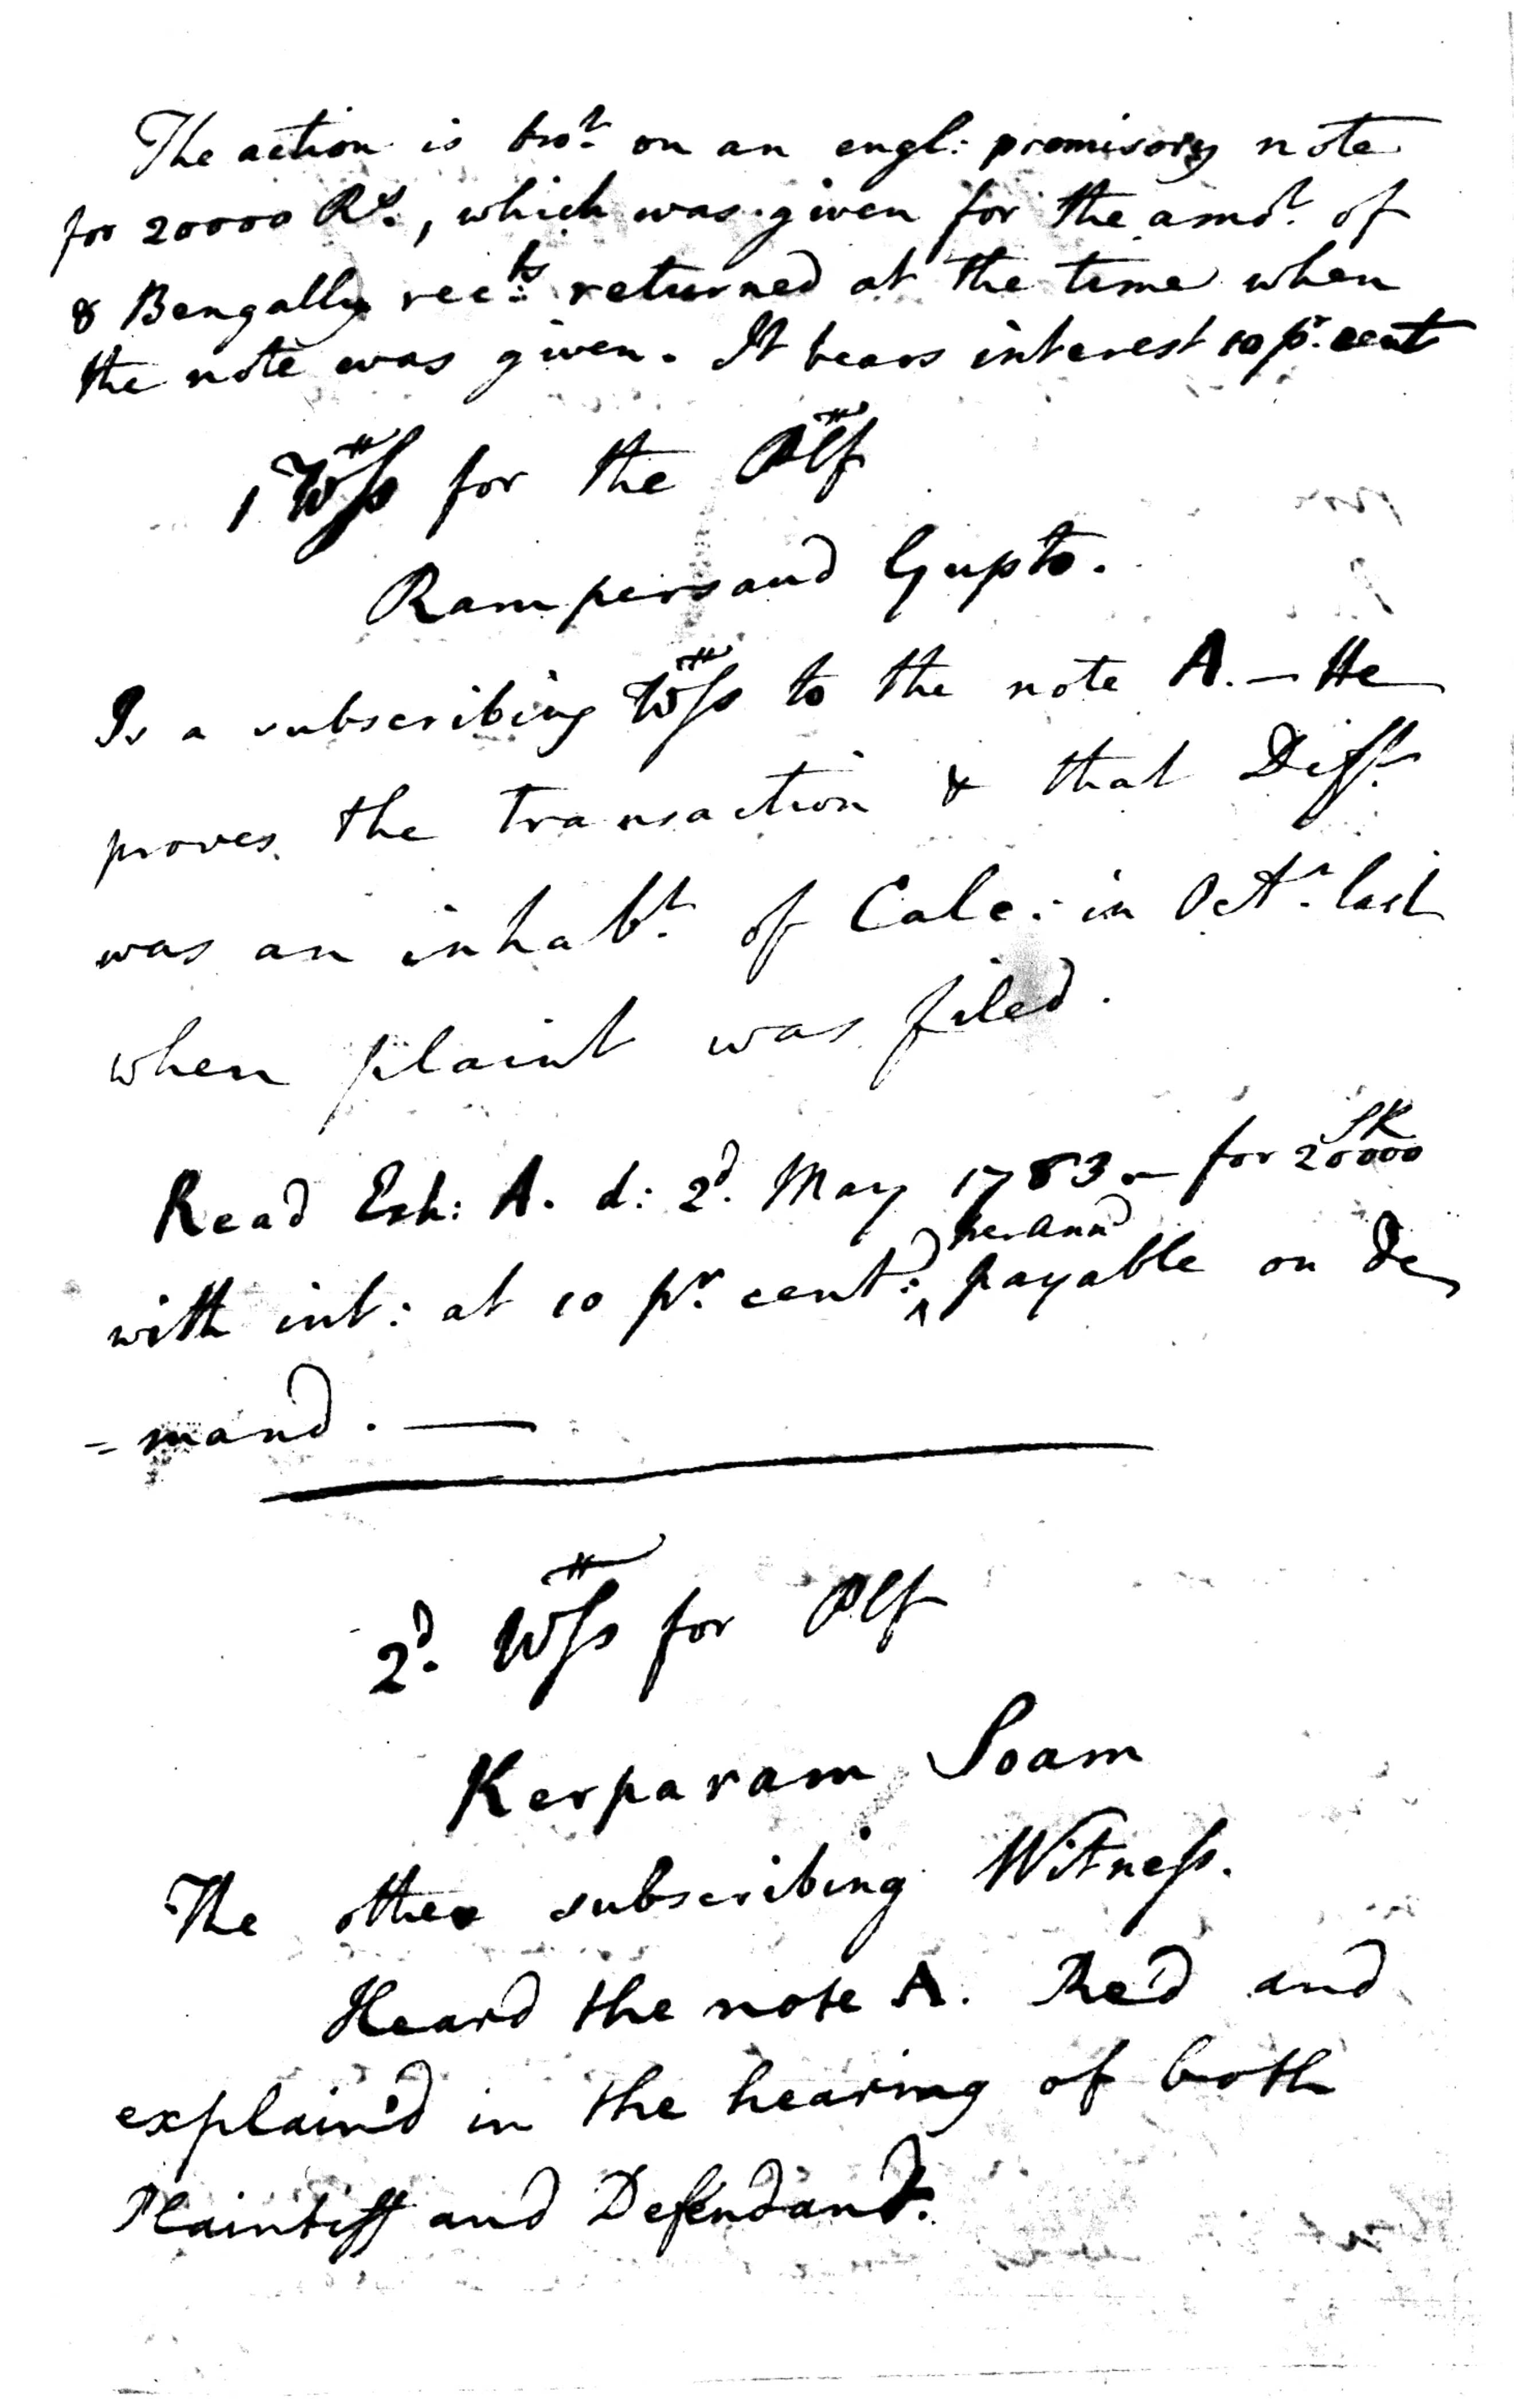 The action is brot. on an engl: promisory note
for 20000 Rs., which was given for the amot. of
8 Bengally rects. returned at the time when
the note was given. It bears interest 10 pr. cent
1 Wss for the Plf
Rampersaud Gupto.
Is a subscribing Wss to the note A. — He
proves the transaction & that Dift.
was an inhabt. of Calc: in Octr. last
when plaint was filed.
Read Exh: A. d: 2d. May 1783 — for 20000 SR
with int: at 10 pr. cent: per annd payable on de
= mand. —
2d. Wss for Plf
Kerparam Soam
The other subscribing Witness.
Heard the note A. Re'd and
explain'd in the hearing of both
Plaintiff and Defendant.